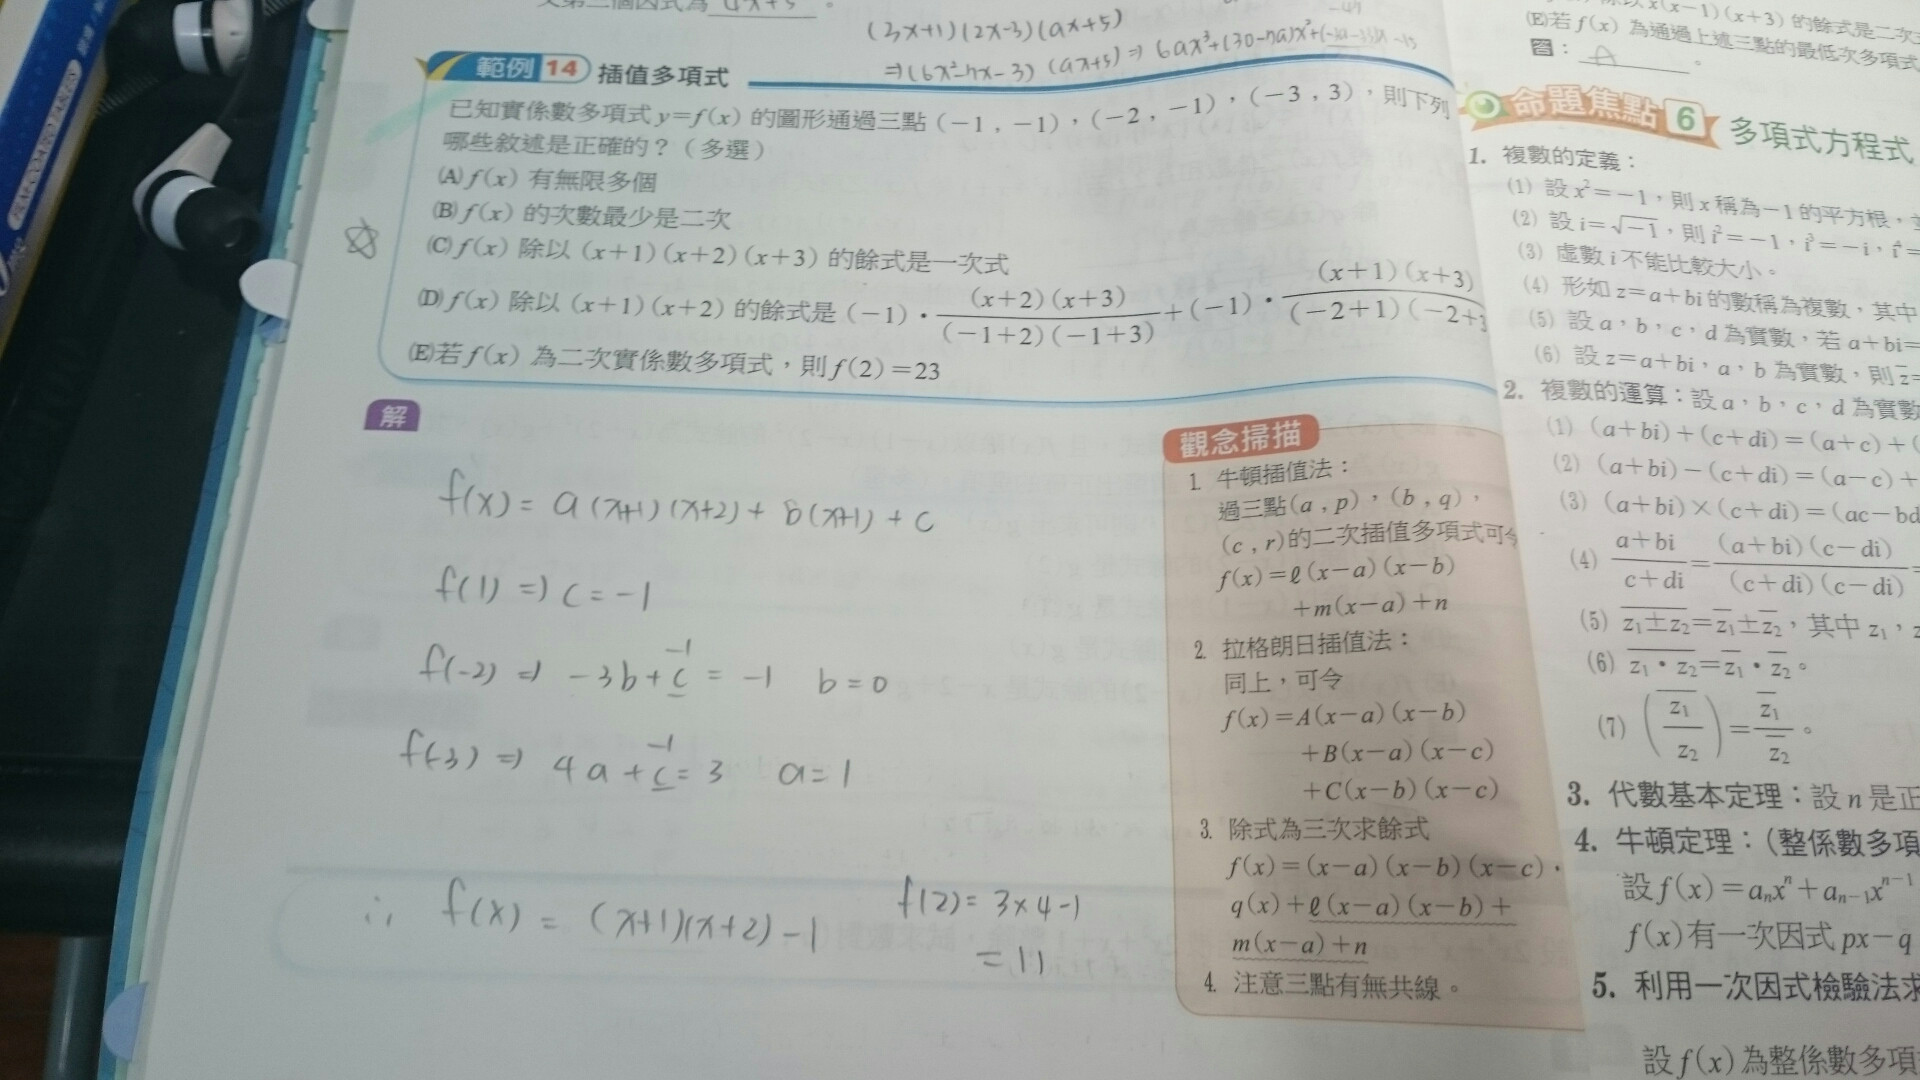 (3x+1)(2x-3)(ax+5)
範例 14 插值多項式
已知實係數多項式 y=f(x) 的圖形通過三點 (-1, -1), (-2, -1), (-3, 3), 則下列
哪些敘述是正確的?(多選)
(A) f(x) 有無限多個
(B) f(x) 的次數最少是二次
(C) f(x) 除以 (x+1)(x+2)(x+3) 的餘式是一次式
(D) f(x) 除以 (x+1)(x+2) 的餘式是 (-1)・(x+2)(x+3)/(-1+2)(-1+3)+(-1)・(x+1)(x+3)/(-2+1)(-2+3
(E)若 f(x) 為二次實係數多項式,則 f(2)=23
解
f(x)= a(x+1)(x+2)+ b(x+1)+c
f(1) => c=-1
f(-2) => -3b+c = -1 b=0
-1
f(-3) => 4a+c=3 a=1
-1
∴ f(x) = (x+1)(x+2)-1
f(2)= 3×4-1
=11
觀念掃描
1. 牛頓插值法:
過三點(a, p), (b, q),
(c, r)的二次插值多項式可令
f(x)=ℓ(x-a)(x-b)
+m(x-a)+n
2. 拉格朗日插值法:
同上,可令
f(x)=A(x-a)(x-b)
+B(x-a)(x-c)
+C(x-b)(x-c)
3. 除式為三次求餘式
f(x)=(x-a)(x-b)(x-c)・
q(x)+ℓ(x-a)(x-b)+
m(x-a)+n
4. 注意三點有無共線。
x(x-1)(x+3) 的餘式是二次
(E)若 f(x) 為通過上述三點的最低次多項式
答: A 。
命題焦點 6 多項式方程式
1. 複數的定義:
(1) 設 x²=-1,則 x 稱為 -1 的平方根,
(2) 設 i=√-1,則 i²=-1, i³=-i, i⁴=
(3) 虛數 i 不能比較大小。
(4) 形如 z=a+bi 的數稱為複數,其中
(5) 設 a, b, c, d 為實數,若 a+bi=
(6) 設 z=a+bi, a, b 為實數,則 z̄=
2. 複數的運算:設 a, b, c, d 為實數
(1) (a+bi)+(c+di)=(a+c)+(
(2) (a+bi)-(c+di)=(a-c)+
(3) (a+bi)×(c+di)=(ac-bd
(4) a+bi/c+di=(a+bi)(c-di)/(c+di)(c-di)=
(5) z̅₁̅±̅z̅₂̅=z̅₁±z̅₂,其中 z₁,
(6) z̅₁̅・̅z̅₂̅=z̅₁・z̅₂。
(7) (z̅₁/z₂)=z̅₁/z̅₂。
3. 代數基本定理:設 n 是正
4. 牛頓定理:(整係數多項
設 f(x)=aₙxⁿ+aₙ₋₁xⁿ⁻¹
f(x)有一次因式 px-q
5. 利用一次因式檢驗法求
設 f(x) 為整係數多項